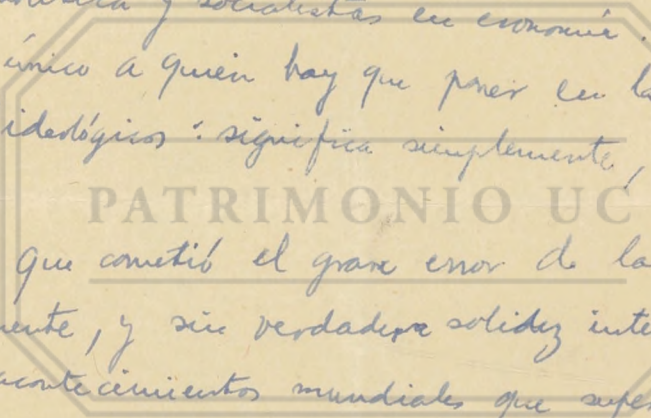 y socialistas en economía.
único a quien hay que poner en la
ideológicos: significa simplemente,
PATRIMONIO UC
que cometió el grave error de la
mente, y sin verdadera solidez inte
acontecimientos mundiales que supe